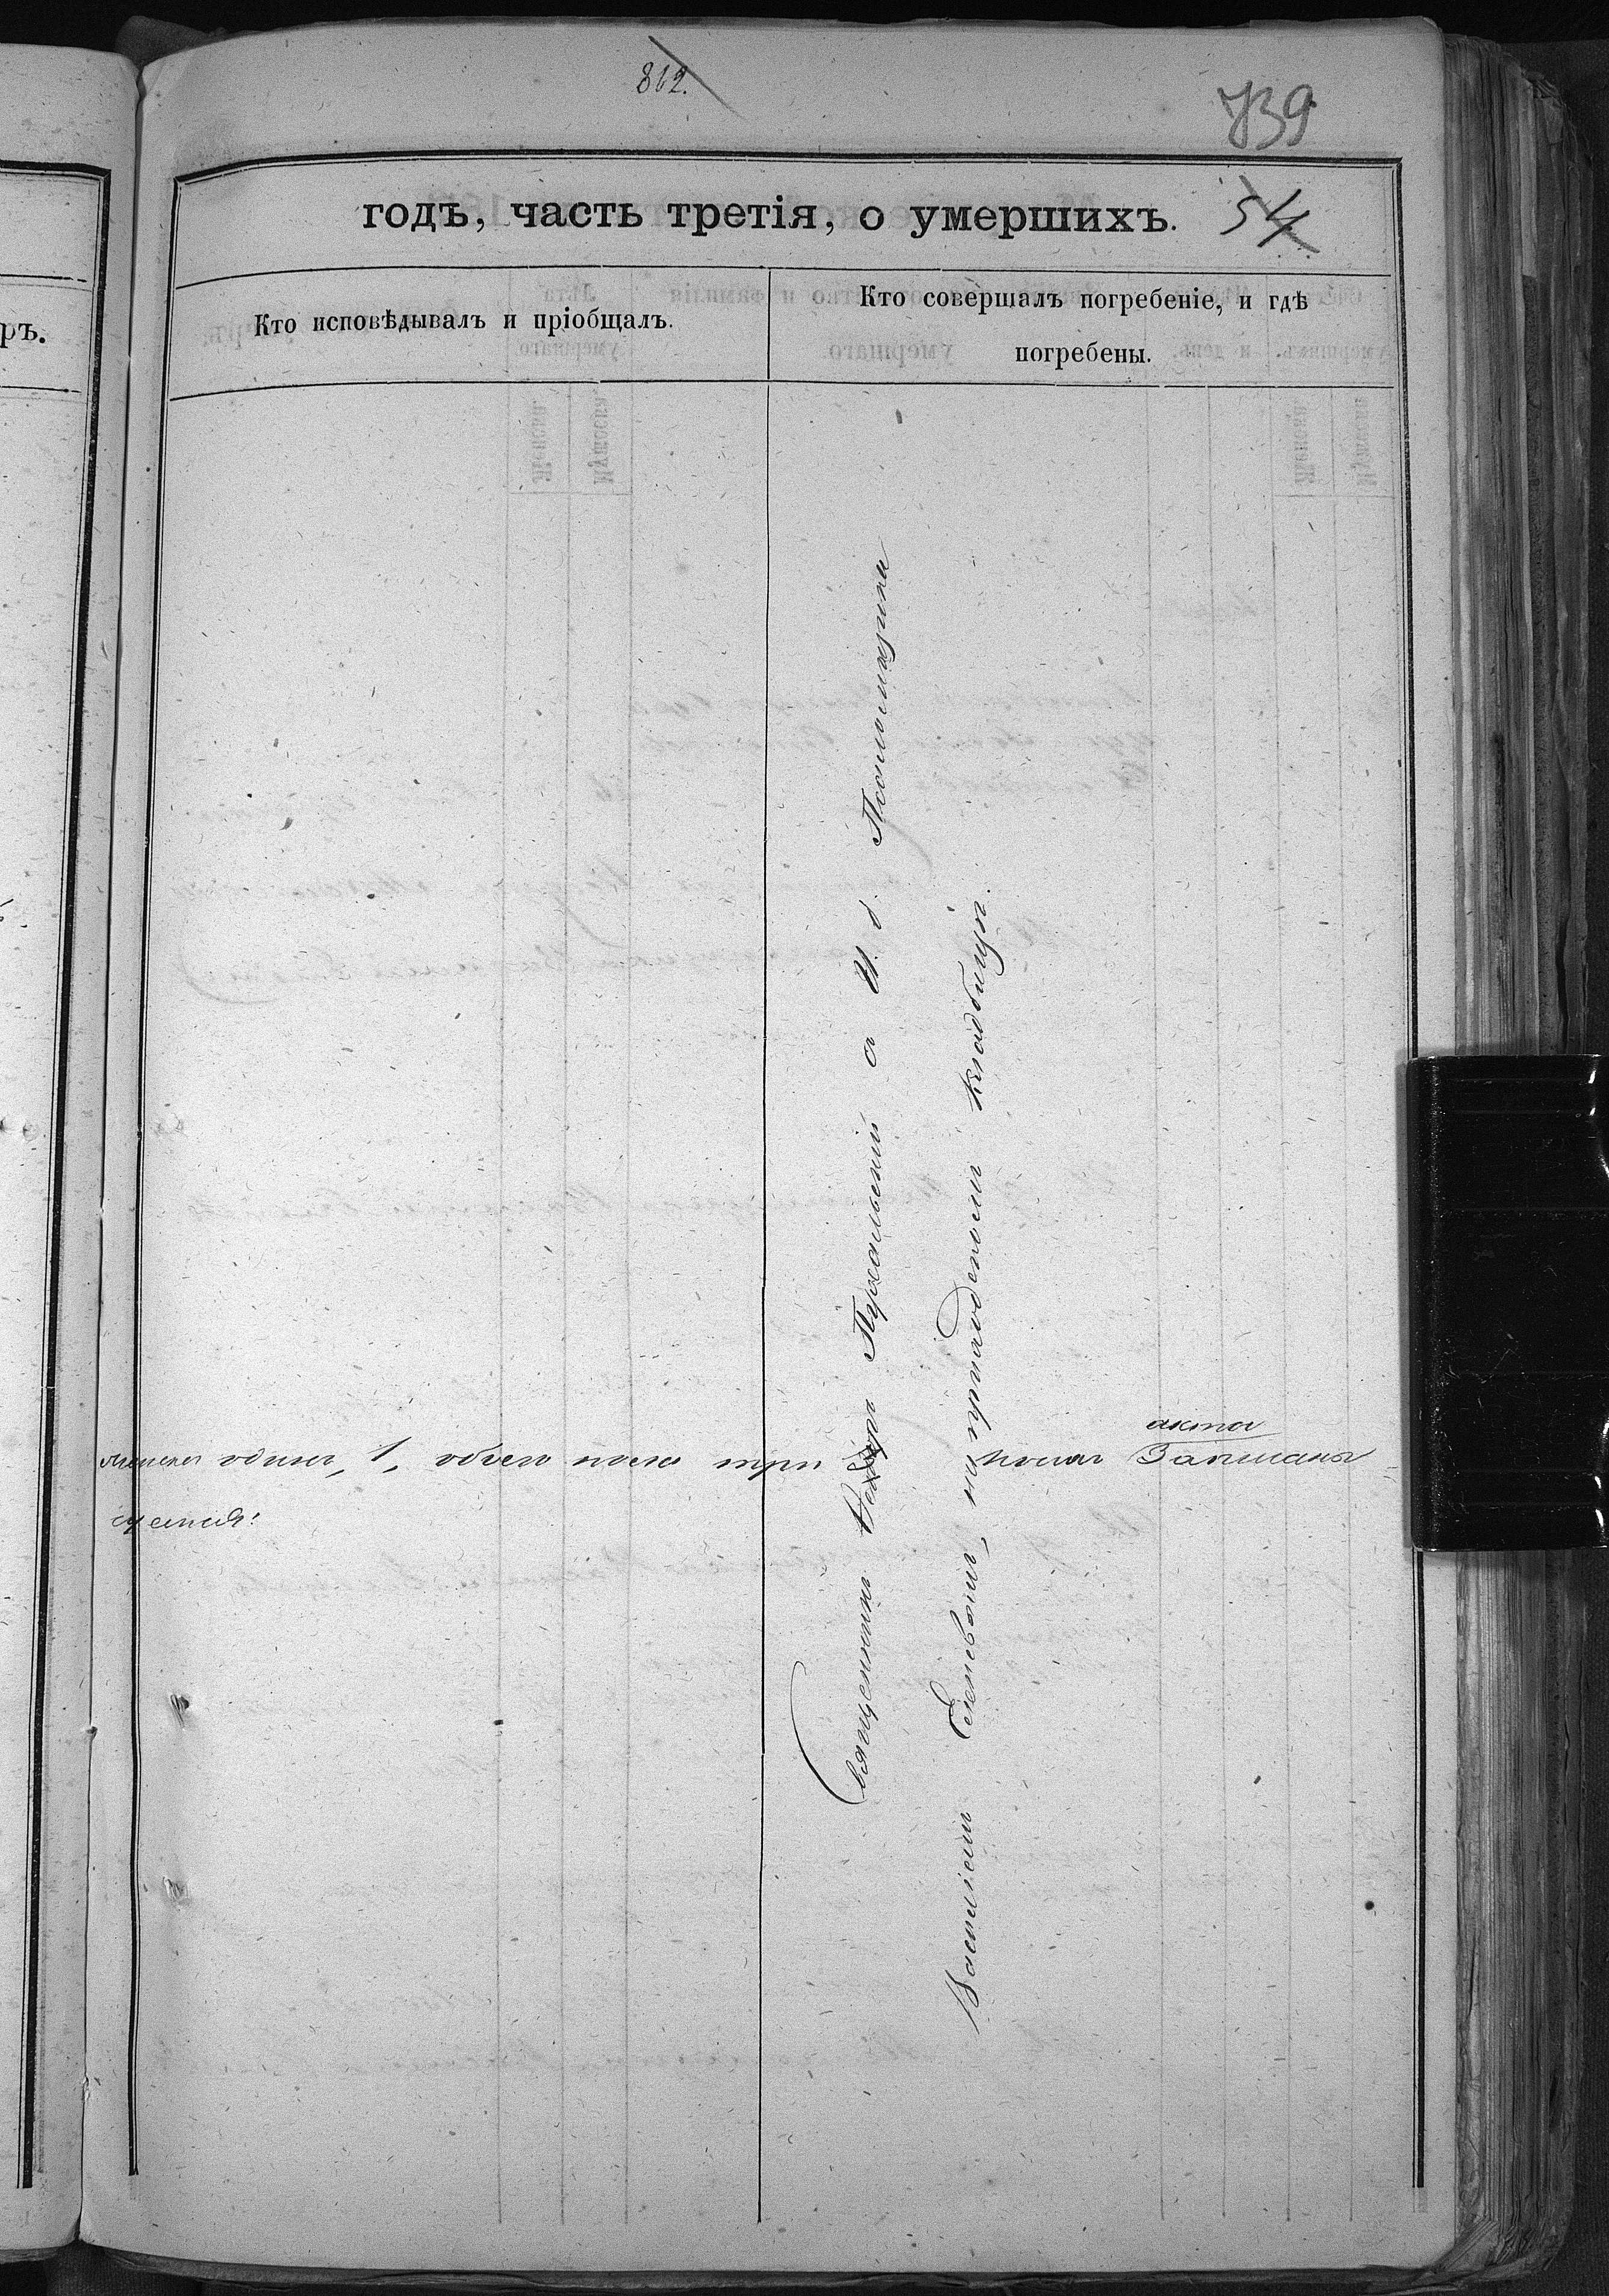 812.
739
годъ, часть третія, о умершихъ. 54
Кто исповѣдывалъ и пріобщалъ.
Кто совершалъ погребеніе, и гдѣ
погребены.
Священникъ Ѳеодоръ Пухальскій с И. д. Псаломщика
Василіемъ на приходскомъ кладбищѣ.
акта
женска одинъ, 1, обоего пола три
Записаны
ръ.